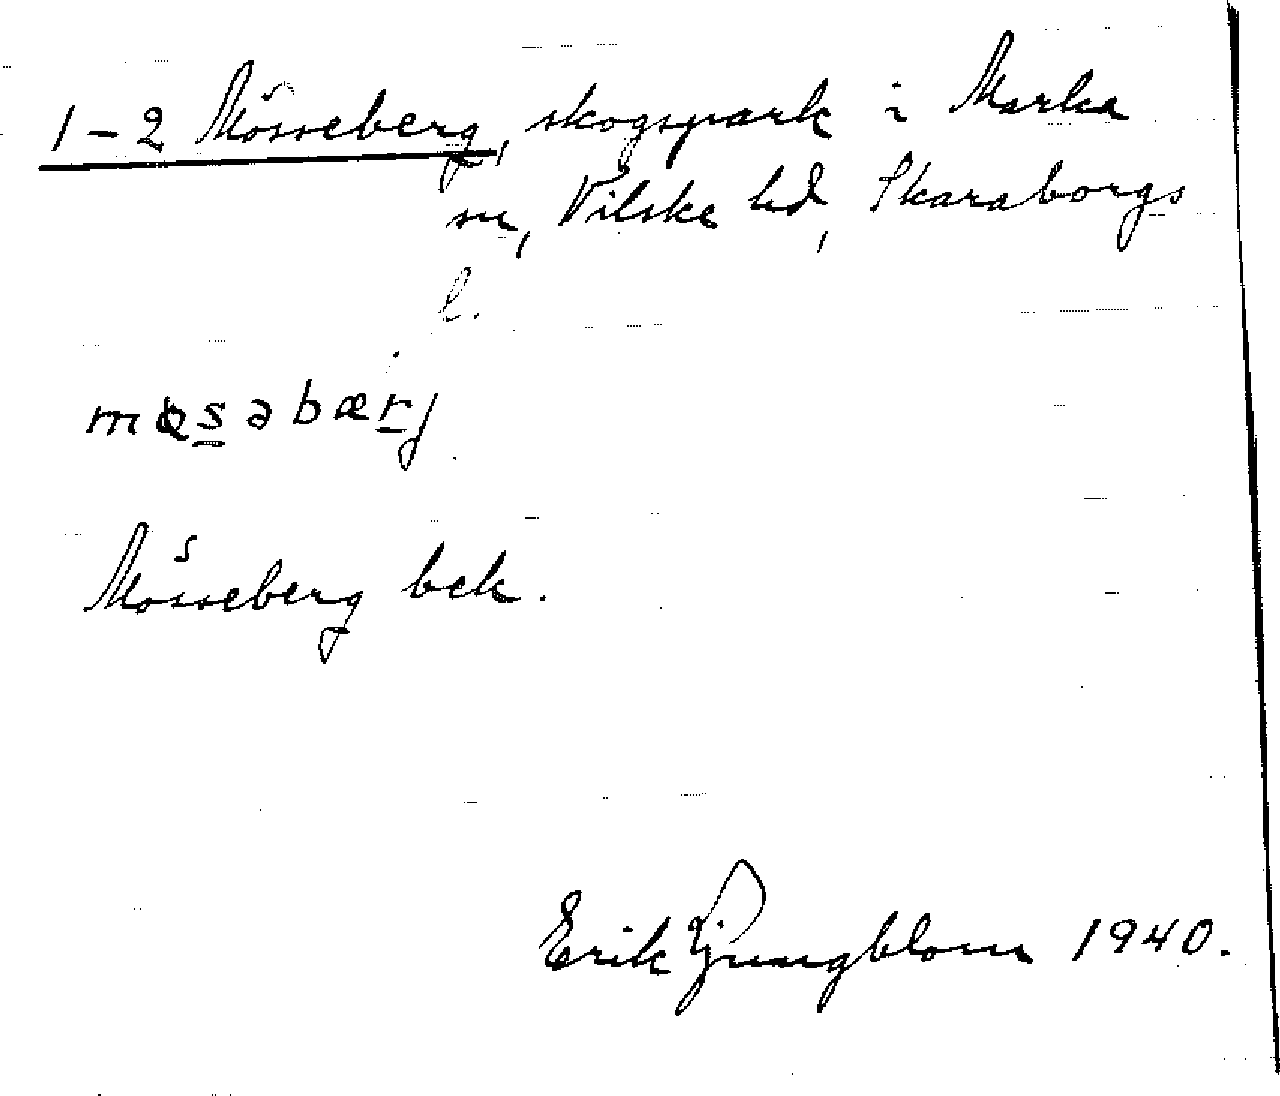 1-2 Mösseberg, skogspark i Marka
sn, Vilske hd, Skaraborgs
l.
Mösseberg bek.
Erik Ljungblom 1940.